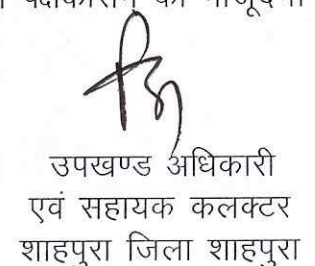 उपखण्ड अधिकारी
एवं सहायक कलक्टर
शाहपुरा जिला शाहपुरा